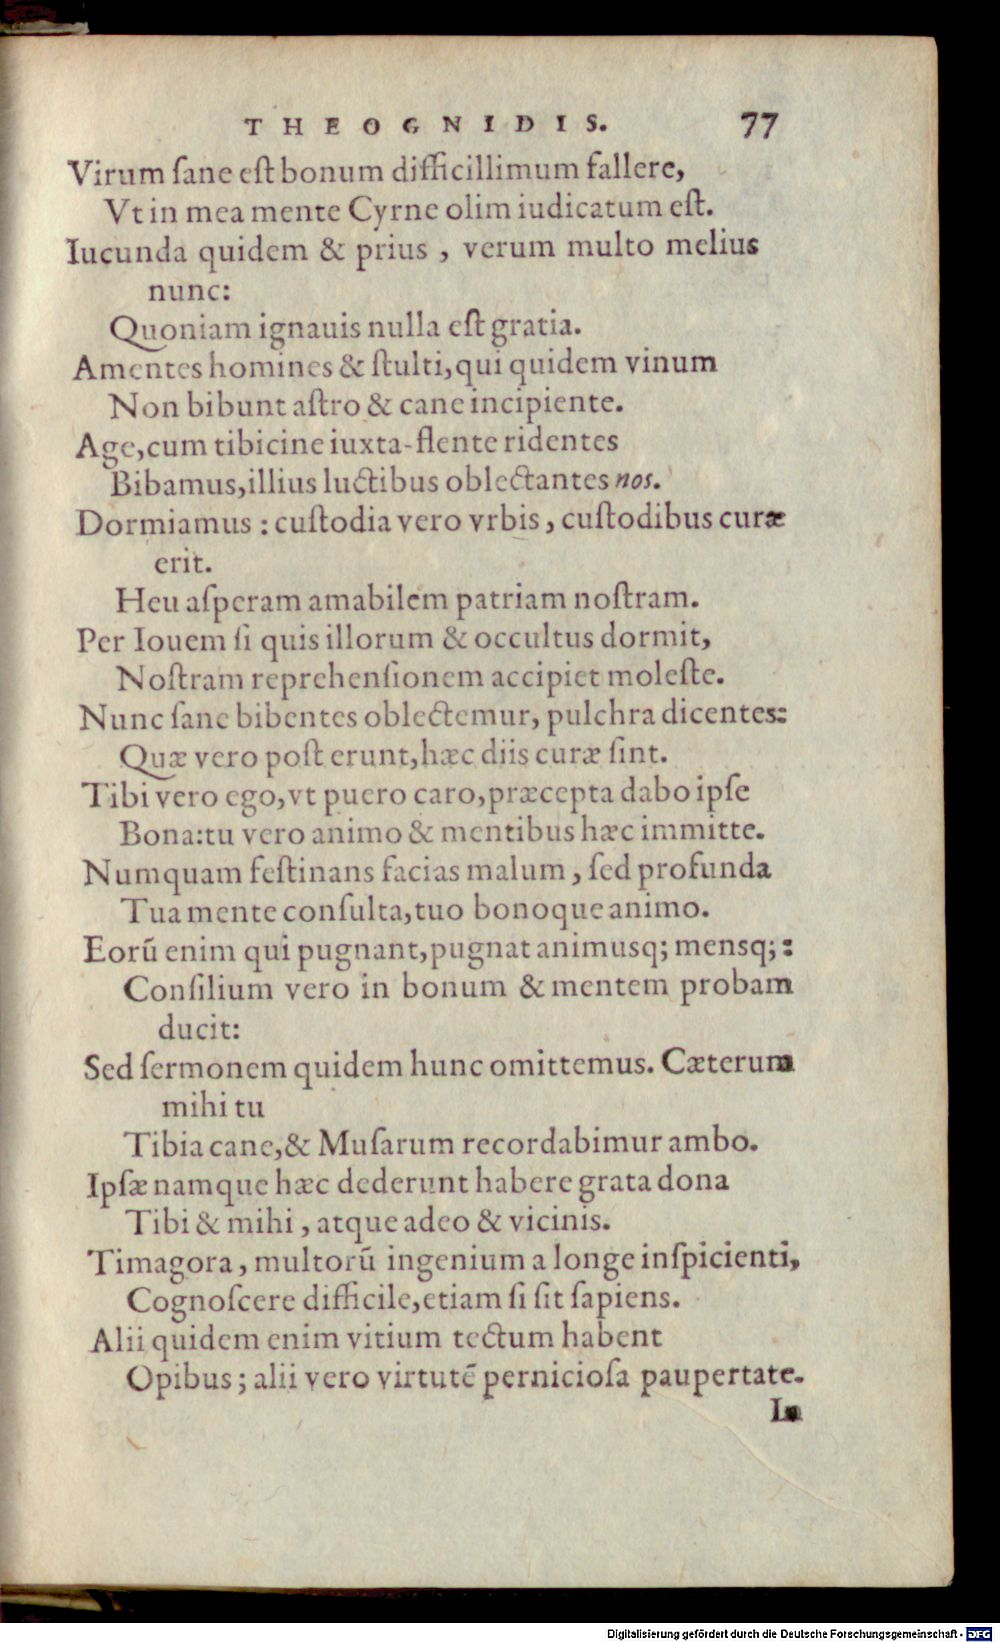 THEOGNIDIS. 77
Virum ſane eſt bonum difficillimum fallere,
Vt in mea mente Cyrne olim iudicatum eſt.
Iucunda quidem & prius, verum multo melius
nunc:
Quoniam ignauis nulla eſt gratia.
Amentes homines & ſtulti, qui quidem vinum
Non bibunt aſtro & cane incipiente.
Age, cum tibicine iuxta-flente ridentes
Bibamus, illius luctibus oblectantes nos.
Dormiamus: cuſtodia vero vrbis, cuſtodibus curæ
erit.
Heu aſperam amabilem patriam noſtram.
Per Iouem ſi quis illorum & occultus dormit,
Noſtram reprehenſionem accipiet moleſte.
Nunc ſane bibentes oblectemur, pulchra dicentes:
Quæ vero poſt erunt, hæc diis curæ ſint.
Tibi vero ego, vt puero caro, præcepta dabo ipſe
Bona: tu vero animo & mentibus hæc immitte.
Numquam feſtinans facias malum, ſed profunda
Tua mente conſulta, tuo bonoque animo.
Eorũ enim qui pugnant, pugnat animusq; mensq;:
Conſilium vero in bonum & mentem probam
ducit:
Sed ſermonem quidem hunc omittemus. Cæterum
mihi tu
Tibia cane, & Muſarum recordabimur ambo.
Ipſæ namque hæc dederunt habere grata dona
Tibi & mihi, atque adeo & vicinis.
Timagora, multorũ ingenium a longe inſpicienti,
Cognoſcere difficile, etiam ſi ſit ſapiens.
Alii quidem enim vitium tectum habent
Opibus; alii vero virtutẽ pernicioſa paupertate.
In
Digitalisierung gefördert durch die Deutsche Forschungsgemeinschaft - DFG